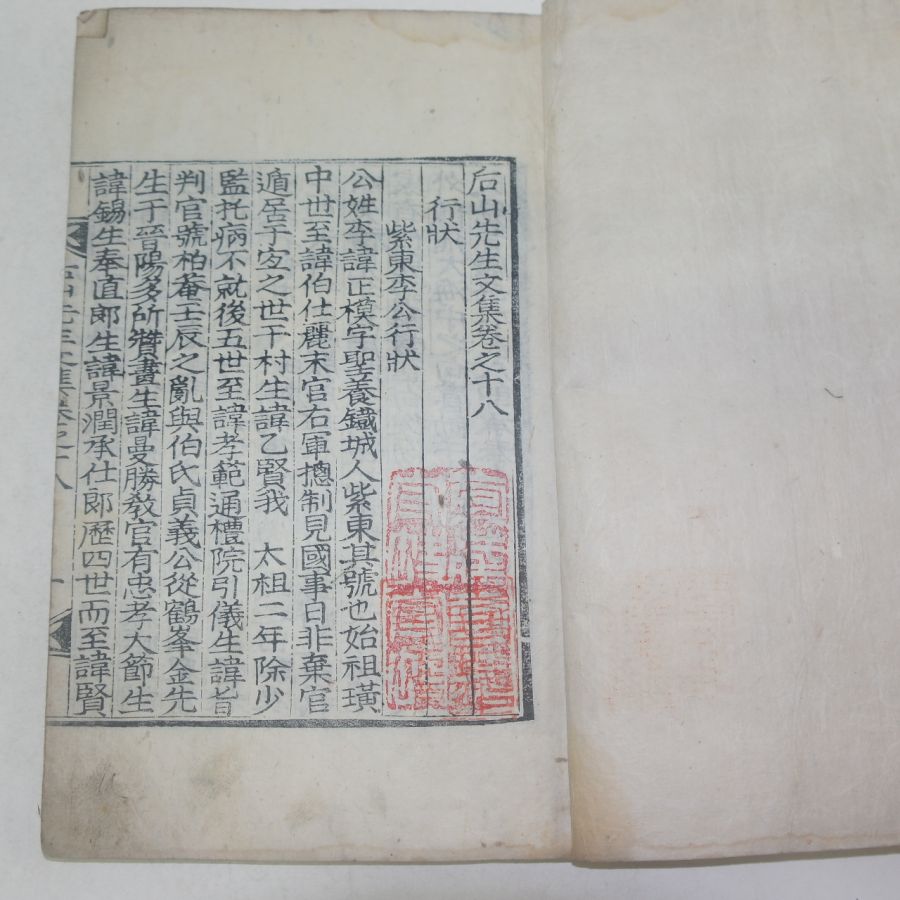 后山先生文集卷之十八
行狀
紫東李公行狀
公姓李諱正模字聖養鐵城人紫東其號也始祖璜
中世至諱伯仕麗末官右軍摠制見國事日非棄官
遁居于宜之世干村生諱乙賢我 太祖二年除少
監托病不就後五世至諱孝範通禮院引儀生諱旨
判官號柏菴壬辰之亂與伯氏貞義公從鶴峯金先
生于晉陽多所贊畫生諱曼勝敎官有忠孝大節生
諱錫生奉直郞生諱景潤承仕郞歷四世而至諱賢